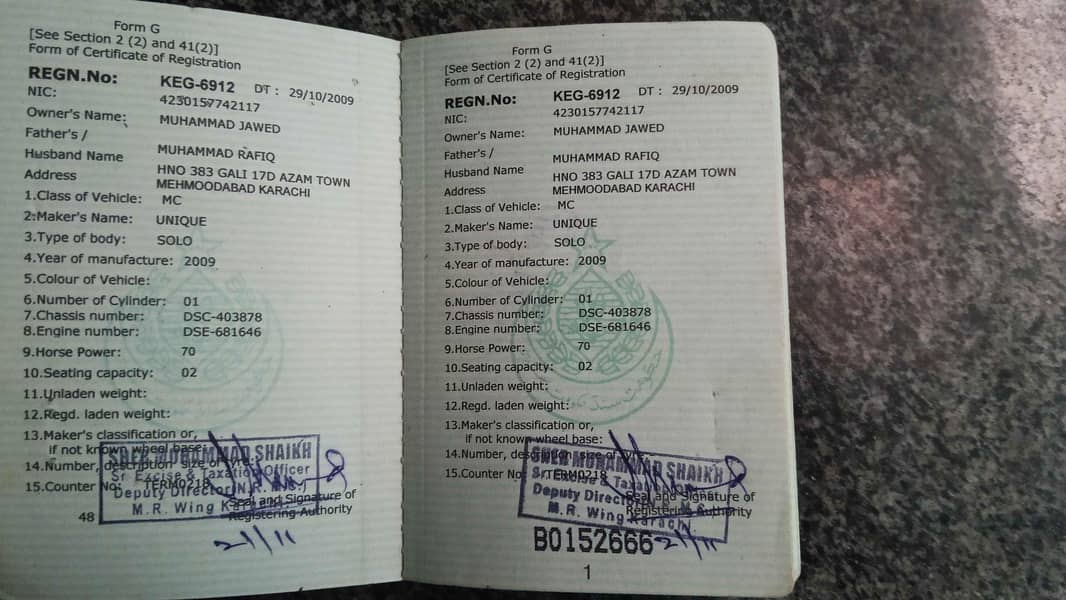 Form G
[See Section 2 (2) and 41(2)]
Form of Certificate of Registration
REGN.No: KEG-6912 DT : 29/10/2009
NIC: 4230157742117
Owner's Name: MUHAMMAD JAWED
Father's /
Husband Name MUHAMMAD RAFIQ
Address HNO 383 GALI 17D AZAM TOWN
MEHMOODABAD KARACHI
1.Class of Vehicle: MC
2.Maker's Name: UNIQUE
3.Type of body: SOLO
4.Year of manufacture: 2009
5.Colour of Vehicle:
6.Number of Cylinder: 01
7.Chassis number: DSC-403878
8.Engine number: DSE-681646
9.Horse Power: 70
10.Seating capacity: 02
11.Unladen weight:
12.Regd. laden weight:
13.Maker's classification or,
if not known wheel base:
14.Number, description size of
15.Counter No: TERM0218
SHER MUHAMMAD SHAIKH
Sr. Excise & Taxation Officer
Deputy Director
M.R. Wing Karachi.
Seal and Signature of
Registering Authority
48
21/11
Form G
[See Section 2 (2) and 41(2)]
Form of Certificate of Registration
REGN.No: KEG-6912 DT : 29/10/2009
NIC: 4230157742117
Owner's Name: MUHAMMAD JAWED
Father's /
Husband Name MUHAMMAD RAFIQ
Address HNO 383 GALI 17D AZAM TOWN
MEHMOODABAD KARACHI
1.Class of Vehicle: MC
2.Maker's Name: UNIQUE
3.Type of body: SOLO
4.Year of manufacture: 2009
5.Colour of Vehicle:
6.Number of Cylinder: 01
7.Chassis number: DSC-403878
8.Engine number: DSE-681646
9.Horse Power: 70
10.Seating capacity: 02
11.Unladen weight:
12.Regd. laden weight:
13.Maker's classification or,
if not known wheel base:
14.Number, description size of
15.Counter No: TERM0218
SHER MUHAMMAD SHAIKH
Sr. Excise & Taxation
Deputy Director
M.R. Wing Karachi.
Seal and Signature of
Registering Authority
B0152666
21/11
1